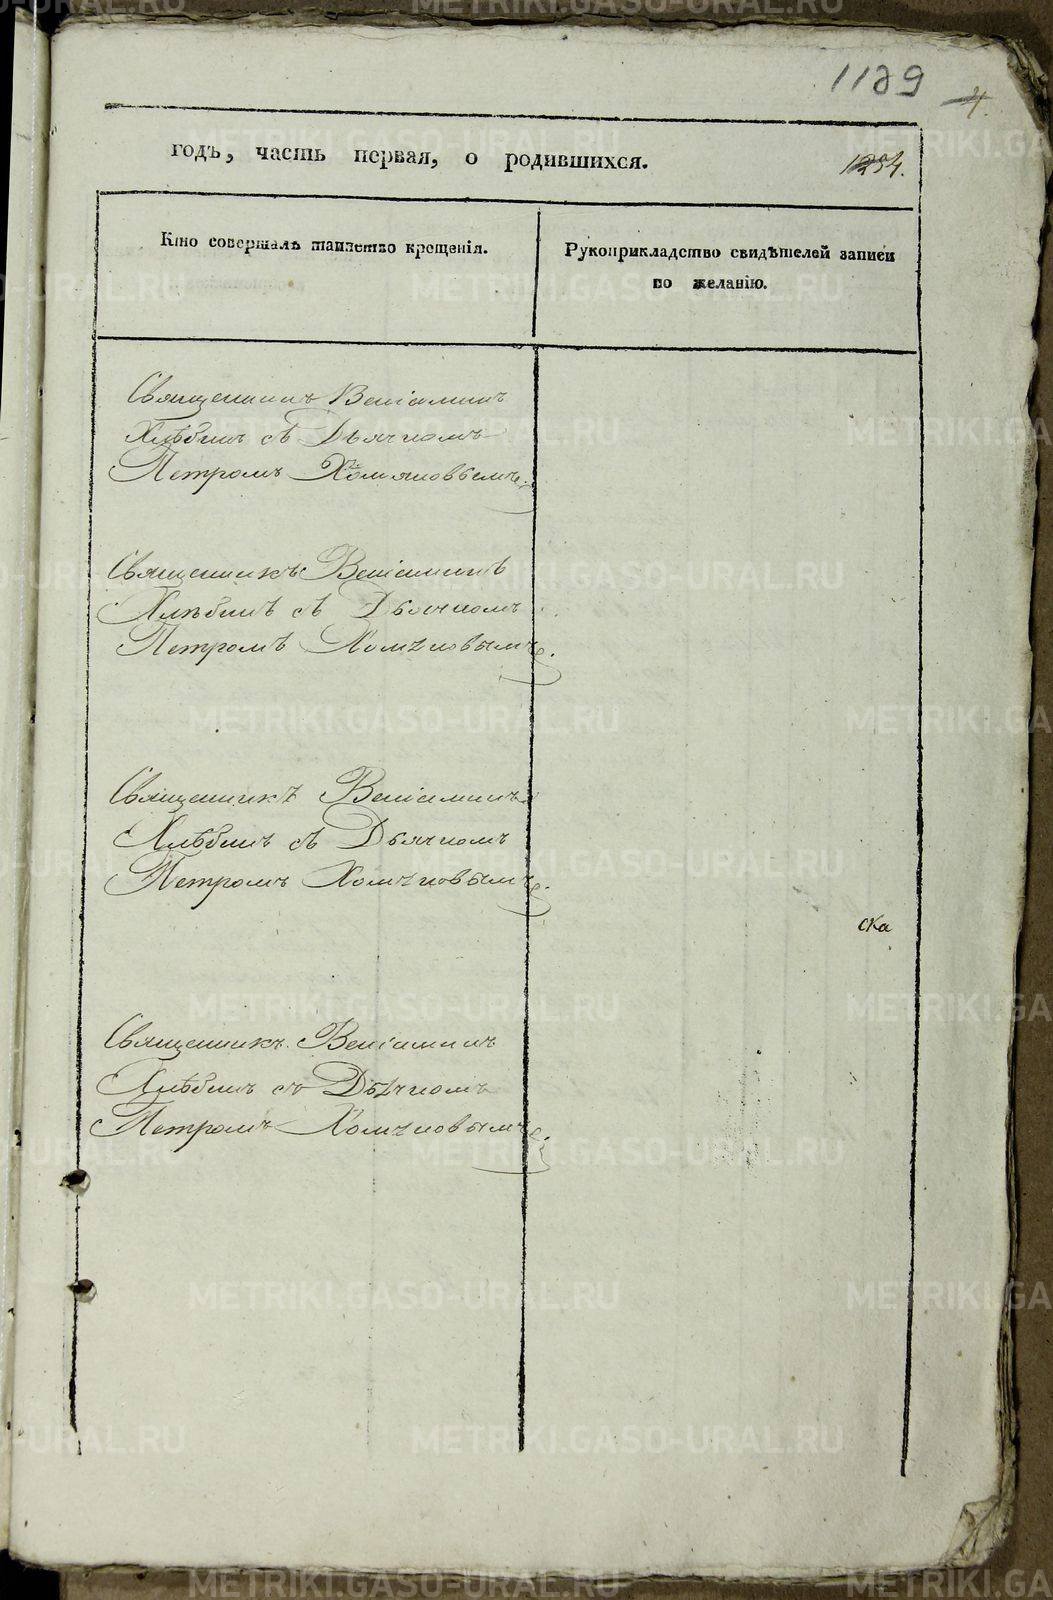 1129
4.
годъ, часть первая, о родившихся.
1254.
Кто совершалъ таинство крещенія.
Рукоприкладство свидѣтелей записи по желанію.
Священникъ Веніаминъ
Хлѣбинъ съ Дьячкомъ
Петромъ Хомяковымъ.
Священникъ Веніаминъ
Хлѣбинъ съ Дьячкомъ
Петромъ Хомяковымъ.
Священникъ Веніаминъ
Хлѣбинъ съ Дьячкомъ
Петромъ Хомяковымъ.
ска
Священникъ Веніаминъ
Хлѣбинъ съ Дьячкомъ
Петромъ Хомяковымъ.
METRIKI.GASO-URAL.RU